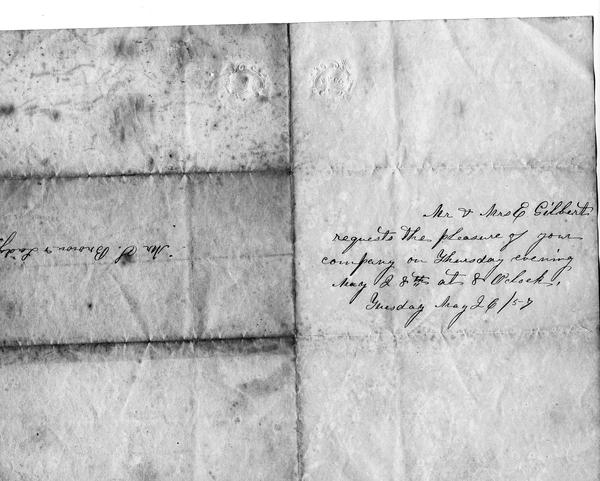 Mr & Mrs E Gilbert
requests the pleasure of your
company on Thursday evening
May 28th at 8 Oclock.
Tuesday May 26/57
Mr S. Brown & Lady